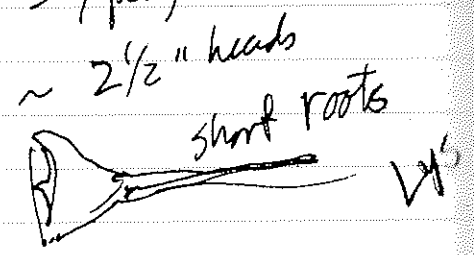 ~ 2 1/2" heads
short roots